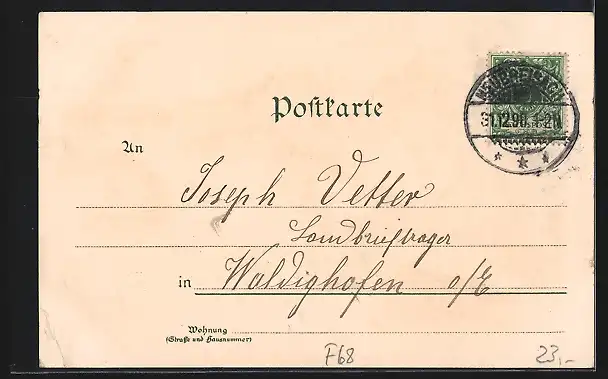 Postkarte
31.12.90. 1-2N
An
Joseph Vetter
Landbriefträger
in Waldighofen o/E
Wohnung
(Straße und Hausnummer)
F68
23,-